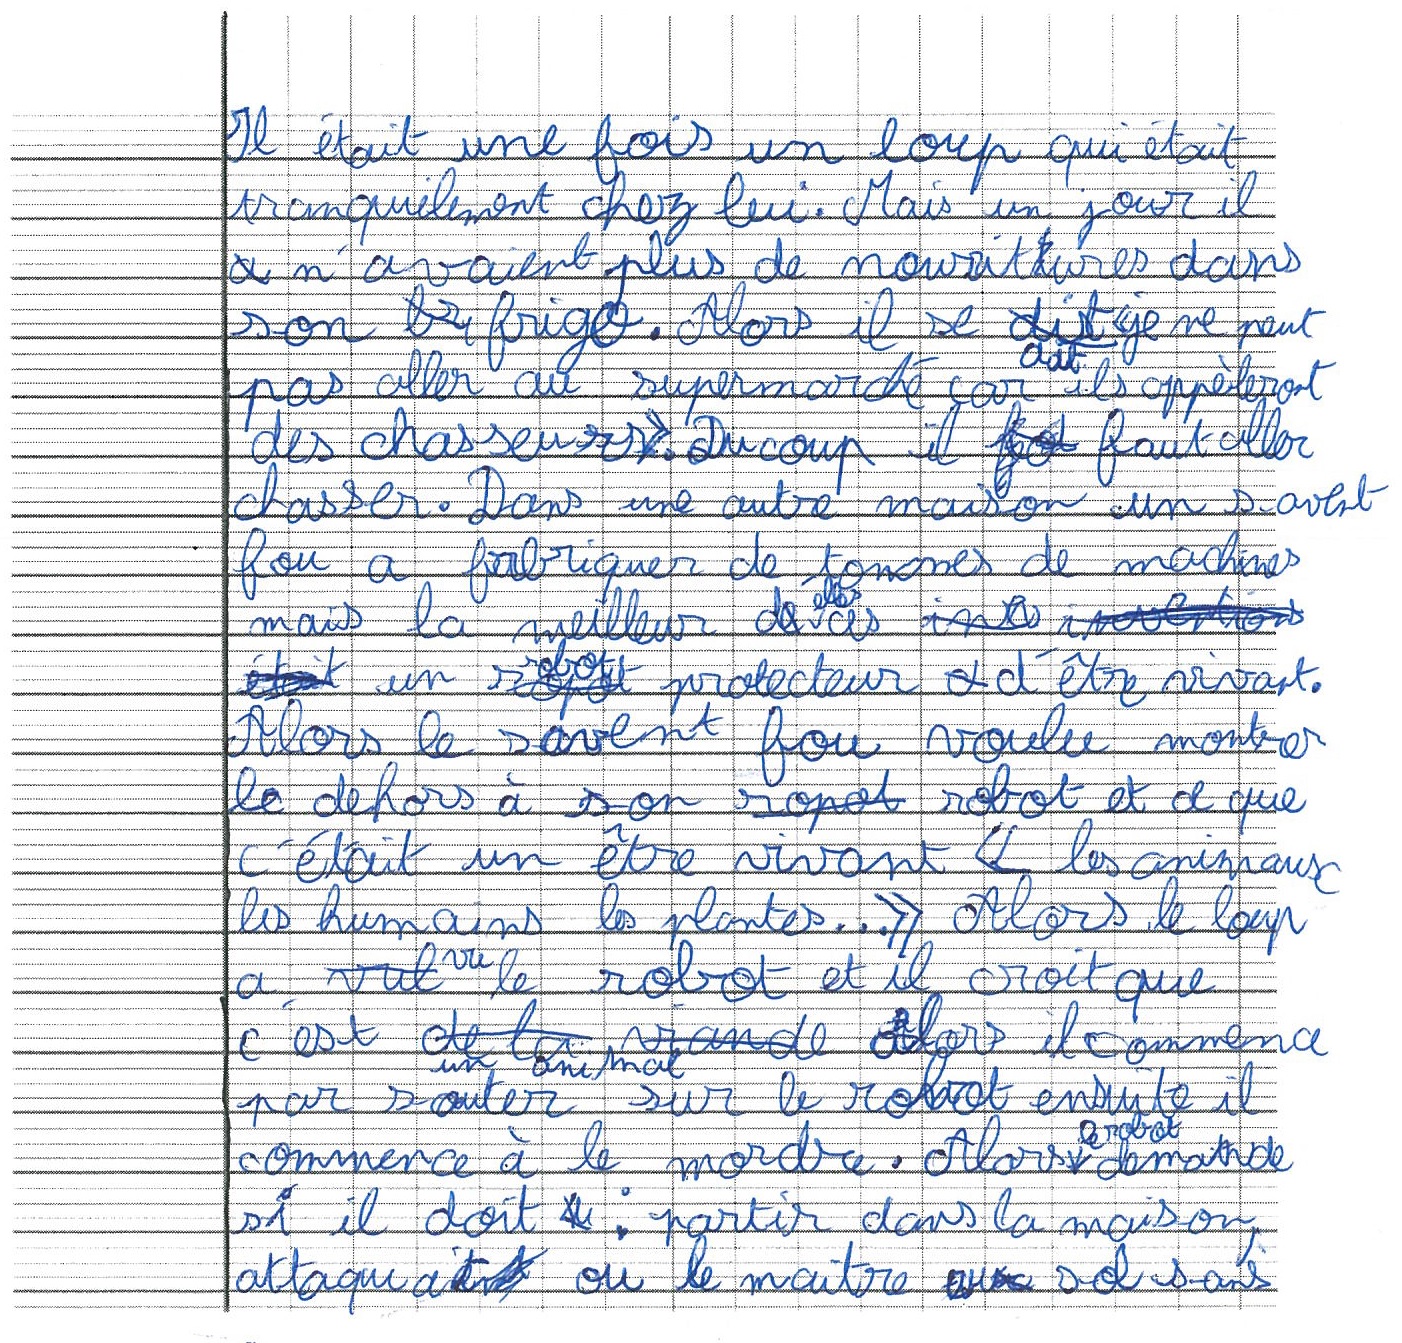 Il était une fois un loup qui était
tranquilement chez lui. Mais un jour il
n'avaient plus de nourritures dans
son frigo. Alors il se dit « je ne peut
pas aller au supermarché car ils appèleront
des chasseurs ». Ducoup il faut aller
chasser. Dans une autre maison un savent
fou a fabriquer de tonnes de machines
mais la meilleur d'elles
un robot protecteur d'être vivant.
Alors le savent fou voulu montrer
le dehors à son robot et ce que
c'était un être vivant « les animaux
les humains les plantes...» Alors le loup
a vu le robot et il croit que
c'est un animal Alors il commence
par sauter sur le robot ensuite il
commence à le mordre. Alors le robot demande
si il doit : partir dans la maison,
ou le maitre sol sans